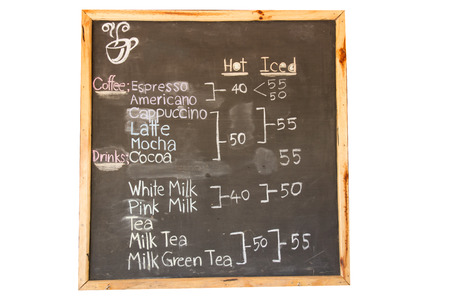 Hot Iced
Coffee; Espresso 40 55
Americano 50
Cappuccino
Latte 50 55
Mocha
Drinks; Cocoa 55
White Milk 40 50
Pink Milk
Tea
Milk Tea 50 55
Milk Green Tea